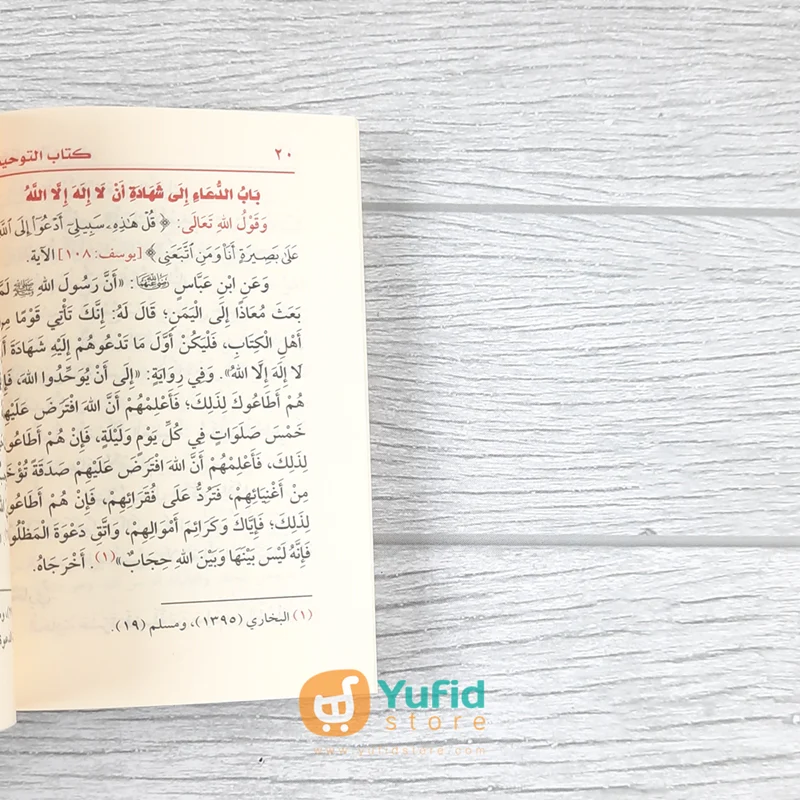 ٢٠ كتاب التوحيد
بَابُ الدُّعَاءِ إِلَى شَهَادَةِ أَنْ لَا إِلَهَ إِلَّا اللَّهُ
وَقَوْلُ اللهِ تَعَالَى: ﴿قُلْ هَٰذِهِۦ سَبِيلِيٓ أَدْعُوٓا۟ إِلَى ٱللَّهِ
عَلَىٰ بَصِيرَةٍ أَنَا۠ وَمَنِ ٱتَّبَعَنِي﴾ [يوسف: ١٠٨] الآية.
وَعَنِ ابْنِ عَبَّاسٍ رَضِيَ اللهُ عَنْهُمَا: «أَنَّ رَسُولَ اللهِ ﷺ لَمَّا
بَعَثَ مُعَاذًا إِلَى الْيَمَنِ؛ قَالَ لَهُ: إِنَّكَ تَأْتِي قَوْمًا مِنْ
أَهْلِ الْكِتَابِ، فَلْيَكُنْ أَوَّلَ مَا تَدْعُوهُمْ إِلَيْهِ شَهَادَةُ أَنْ
لَا إِلَهَ إِلَّا اللهُ». وَفِي رِوَايَةٍ: «إِلَى أَنْ يُوَحِّدُوا اللهَ، فَإِنْ
هُمْ أَطَاعُوكَ لِذَلِكَ؛ فَأَعْلِمْهُمْ أَنَّ اللهَ افْتَرَضَ عَلَيْهِمْ
خَمْسَ صَلَوَاتٍ فِي كُلِّ يَوْمٍ وَلَيْلَةٍ، فَإِنْ هُمْ أَطَاعُوكَ
لِذَلِكَ، فَأَعْلِمْهُمْ أَنَّ اللهَ افْتَرَضَ عَلَيْهِمْ صَدَقَةً تُؤْخَذُ
مِنْ أَغْنِيَائِهِمْ، فَتُرَدُّ عَلَى فُقَرَائِهِمْ، فَإِنْ هُمْ أَطَاعُوكَ
لِذَلِكَ؛ فَإِيَّاكَ وَكَرَائِمَ أَمْوَالِهِمْ، وَاتَّقِ دَعْوَةَ الْمَظْلُومِ
فَإِنَّهُ لَيْسَ بَيْنَهَا وَبَيْنَ اللهِ حِجَابٌ»(١). أَخْرَجَاهُ.
(١) البخاري (١٣٩٥)، ومسلم (١٩).
Yufid
store
www.yufidstore.com